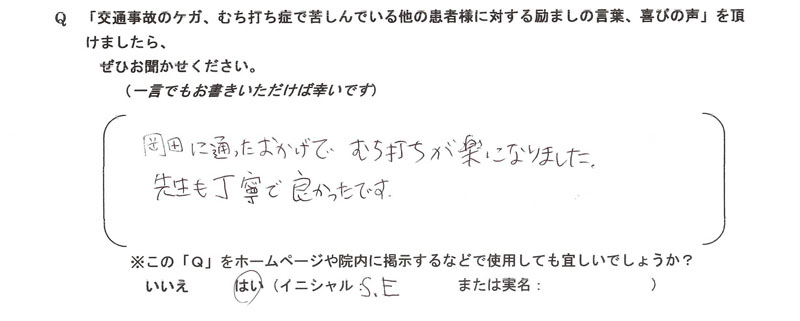 Q 「交通事故のケガ、むち打ち症で苦しんでいる他の患者様に対する励ましの言葉、喜びの声」を頂
けましたら、
ぜひお聞かせください。
（一言でもお書きいただけば幸いです）
岡田に通ったおかげで むち打ちが楽になりました。
先生も丁寧で良かったです.
※この「Q」をホームページや院内に掲示するなどで使用しても宜しいでしょうか？
いいえ はい（イニシャル：S.E または実名： ）